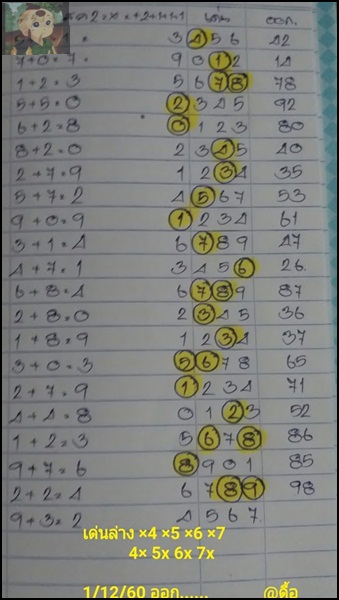 สูตร 2 = × × +2+1+1+1 เด่น ออก.
3 4 5 6 42
7+0=7= 9 0 1 2 14
1+2=3 5 6 7 8 78
5+5=0 2 3 4 5 92
6+2=8 0 1 2 3 80
8+2=0 2 3 4 5 40
2+7=9 1 2 3 4 35
5+7=2 4 5 6 7 53
9+0=9 1 2 3 4 61
3+1=4 6 7 8 9 47
4+7=1 3 4 5 6 26
6+8=4 6 7 8 9 87
2+8=0 2 3 4 5 36
1+8=9 1 2 3 4 37
3+0=3 5 6 7 8 65
2+7=9 1 2 3 4 71
4+4=8 0 1 2 3 52
1+2=3 5 6 7 8 86
9+7=6 8 9 0 1 85
2+2=4 6 7 8 9 98
9+3=2 4 5 6 7
เด่นล่าง ×4 ×5 ×6 ×7
4× 5x 6x 7x
1/12/60 ออก...... @ดื้อ